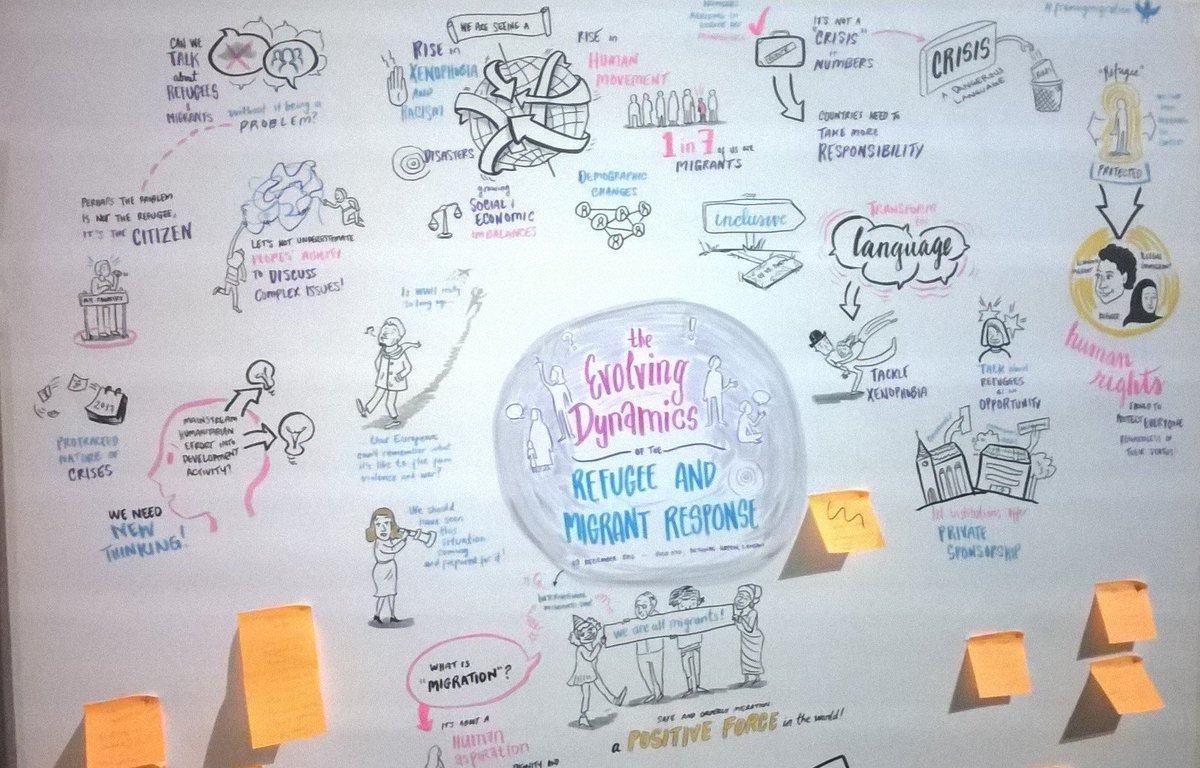 CAN WE
TALK
about
REFUGEES
&
MIGRANTS
without it being a
PROBLEM?
PERHAPS THE PROBLEM
IS NOT THE REFUGEE,
IT'S THE CITIZEN
LET'S NOT UNDERESTIMATE
PEOPLES' ABILITY
TO DISCUSS
COMPLEX ISSUES!
WE ARE SEEING A
RISE in
XENOPHOBIA
AND
RACISM
DISASTERS
growing
SOCIAL &
ECONOMIC
IMBALANCES
RISE in
HUMAN
MOVEMENT
1 in 7 of us are
MIGRANTS
DEMOGRAPHIC
CHANGES
IT'S NOT A
"CRISIS"
in
NUMBERS
CRISIS
A DANGEROUS
LANGUAGE
COUNTRIES NEED TO
TAKE MORE
RESPONSIBILITY
"Refugee"
PROTECTED
inclusive
TRANSFORM
the
language
TACKLE
XENOPHOBIA
TALK about
REFUGEES
as an
OPPORTUNITY
REFUGEE
human
rights
PROTECT EVERYONE
REGARDLESS OF
THEIR STATUS
2017
PROTRACTED
NATURE OF
CRISES
MAINSTREAM
HUMANITARIAN
EFFORT INTO
DEVELOPMENT
ACTIVITY?
WE NEED
NEW
THINKING!
Is WWII really
so long ago...
can't remember what
it's like to flee from
violence and war?
We should
have seen
this
situation
coming
and prepared for it!
the
Evolving
Dynamics
OF THE
REFUGEE AND
MIGRANT RESPONSE
PRIVATE
SPONSORSHIP
INTERNATIONAL
MIGRANTS DAY
we are all migrants!
WHAT IS
"MIGRATION"?
IT'S ABOUT A
Human
aspiration
SAFE AND ORDERLY MIGRATION
a POSITIVE FORCE in the world!